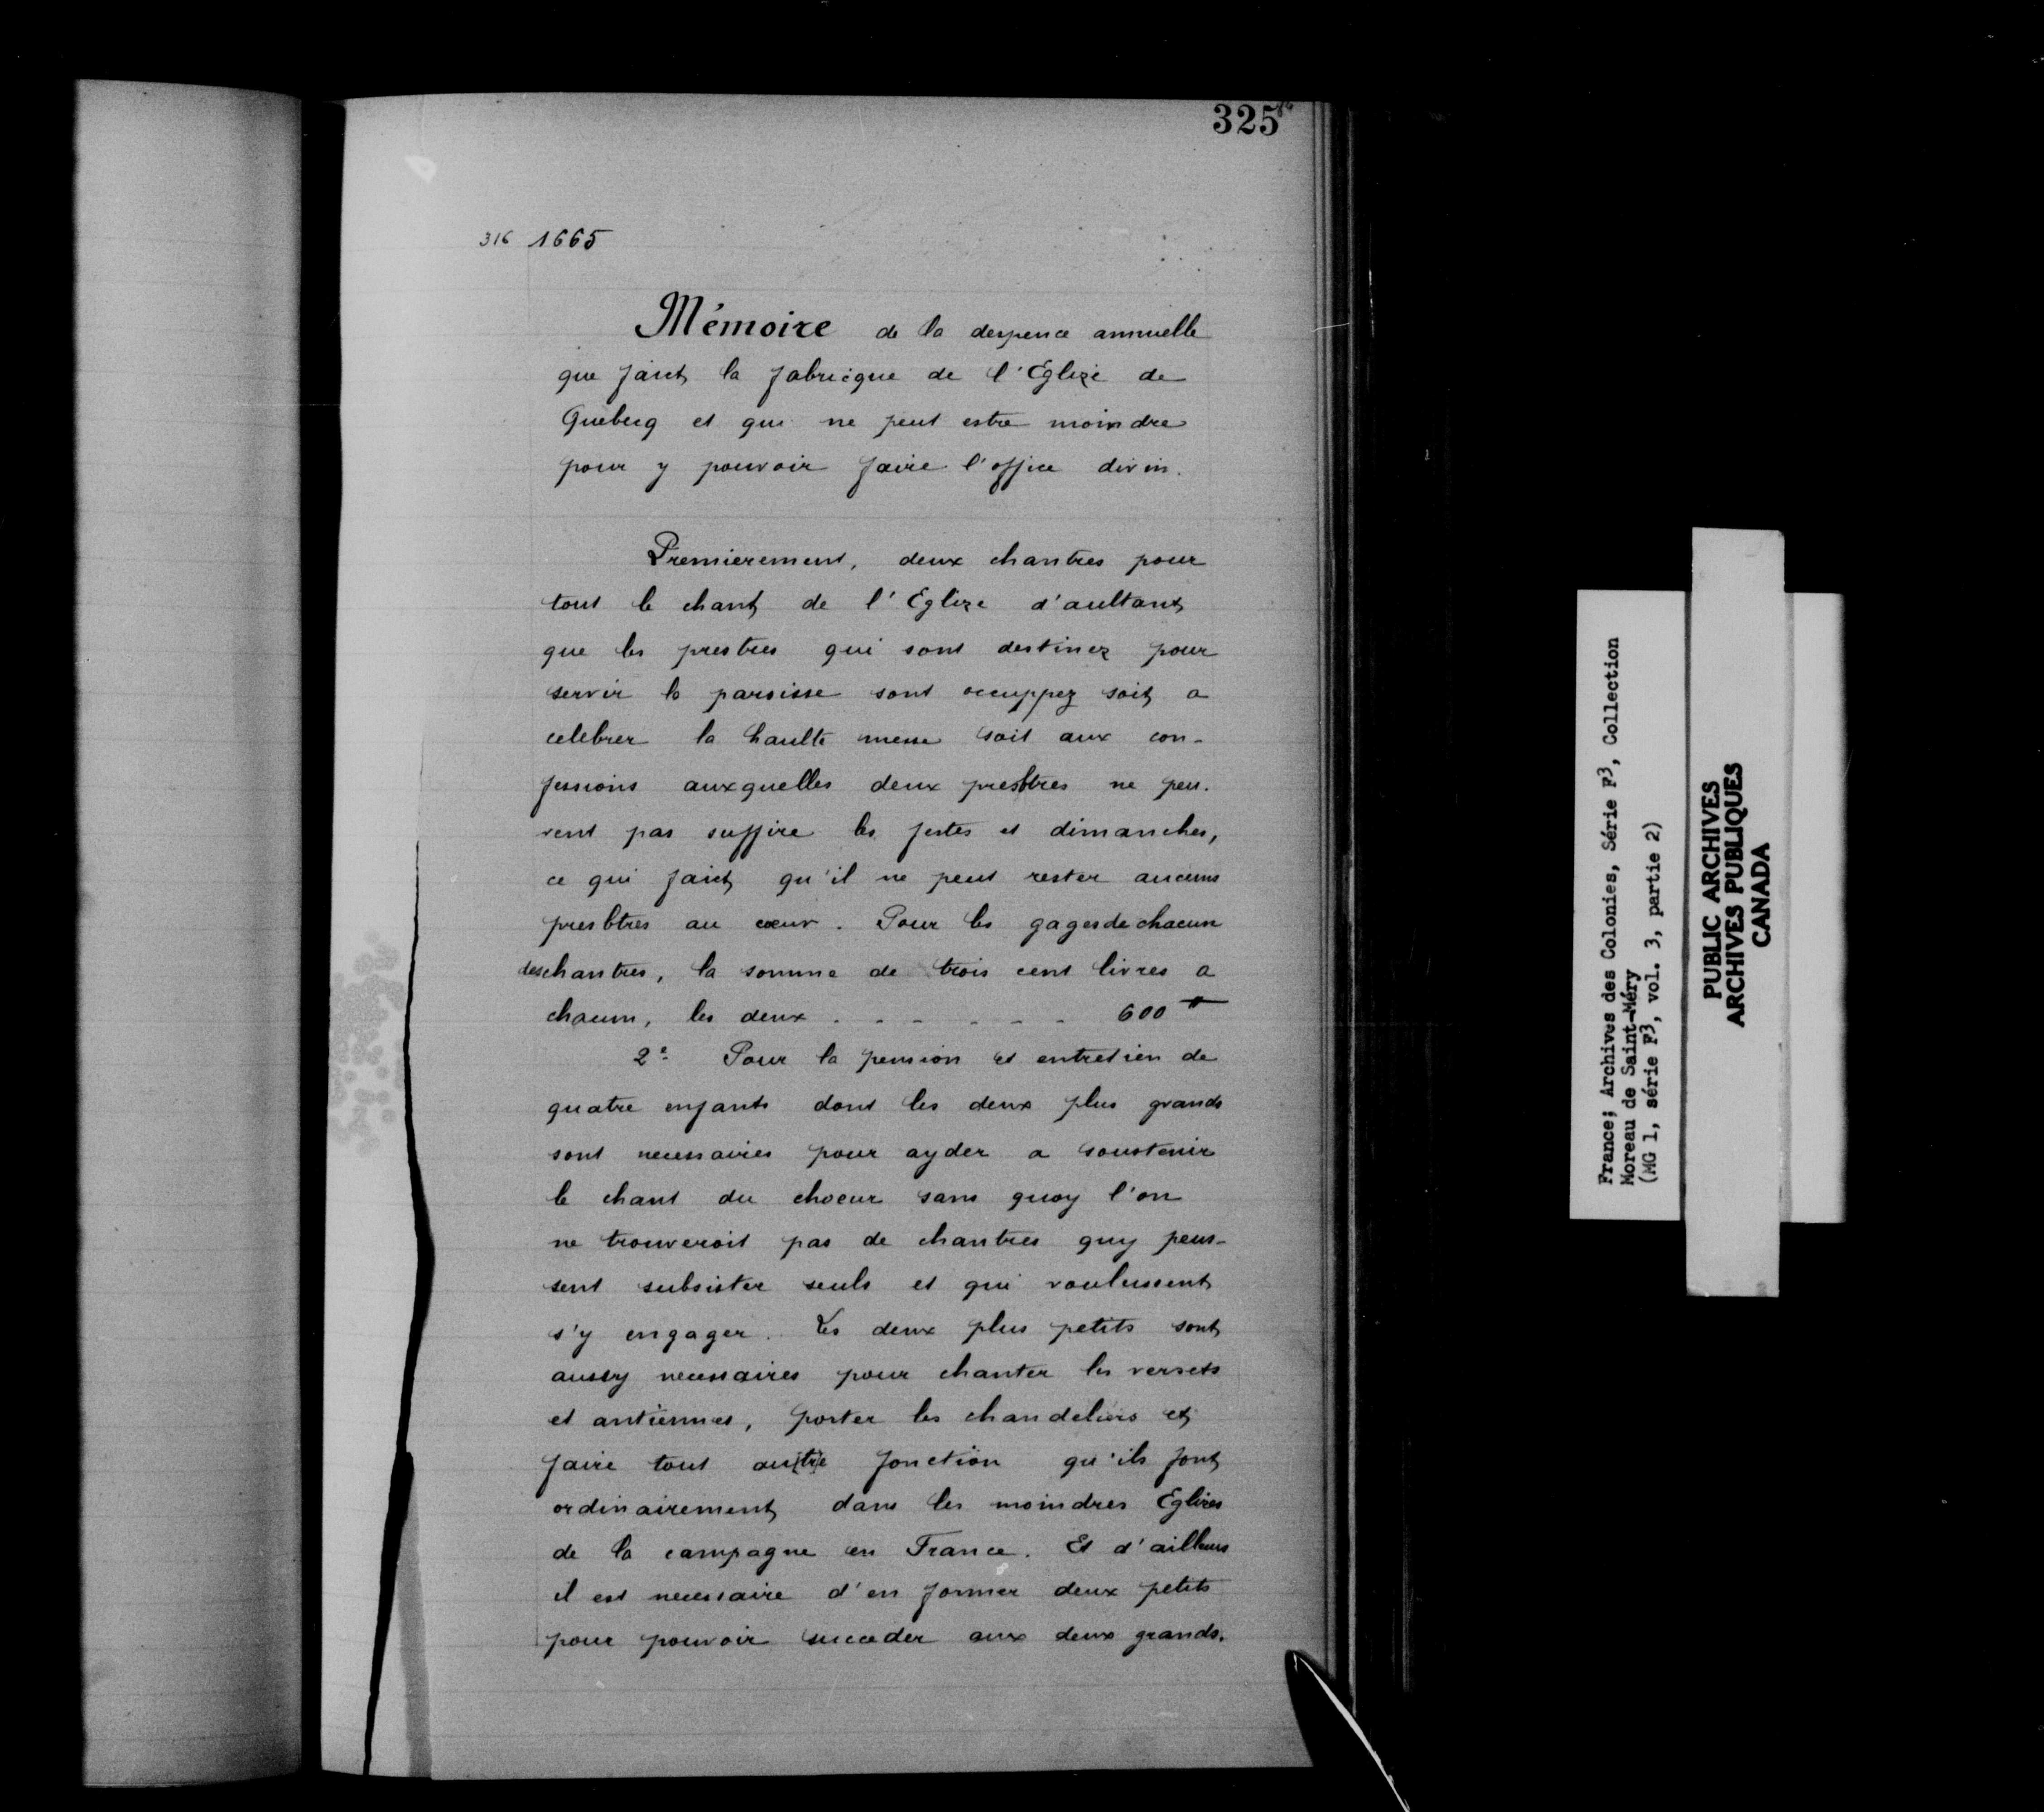 325
316 1665
Mémoire de la despence annuelle
que faict la fabricque de l'Eglize de
Quebecq et qui ne peut estre moindre
pour y pouvoir faire l'office divin.
Premierement, deux chantres pour
tout le chant de l'Eglize d'aultant
que les prestres qui sont destinez pour
servir la paroisse sont occuppez soit a
celebrer la haulte messe soit aux con-
fessions auxquelles deux presbtres ne peu-
vent pas suffire les festes et dimanches,
ce qui faict qu'il ne peut rester aucuns
presbtres au cœur. Pour les gages de chacun
des chantres, la somme de trois cent livres a
chacun, les deux . - - - - - 600 ₶
2º Pour la pension et entretien de
quatre enfants dont les deux plus grands
sont necessaires pour ayder a soustenir
le chant du choeur sans quoy l'on
ne trouveroit pas de chantres quy peus-
sent subsister seuls et qui voulussent
s'y engager. Les deux plus petits sont
aussy necessaires pour chanter les versets
et antiennes, porter les chandeliers et
faire tout autre fonction qu'ils font
ordinairement dans les moindres Eglises
de la campagne en France. Et d'ailleurs
il est necessaire d'en former deux petits
pour pouvoir succeder aux deux grands.
France; Archives des Colonies, Série F³, Collection
Moreau de Saint-Méry
(MG 1, série F³, vol. 3, partie 2)
PUBLIC ARCHIVES
ARCHIVES PUBLIQUES
CANADA